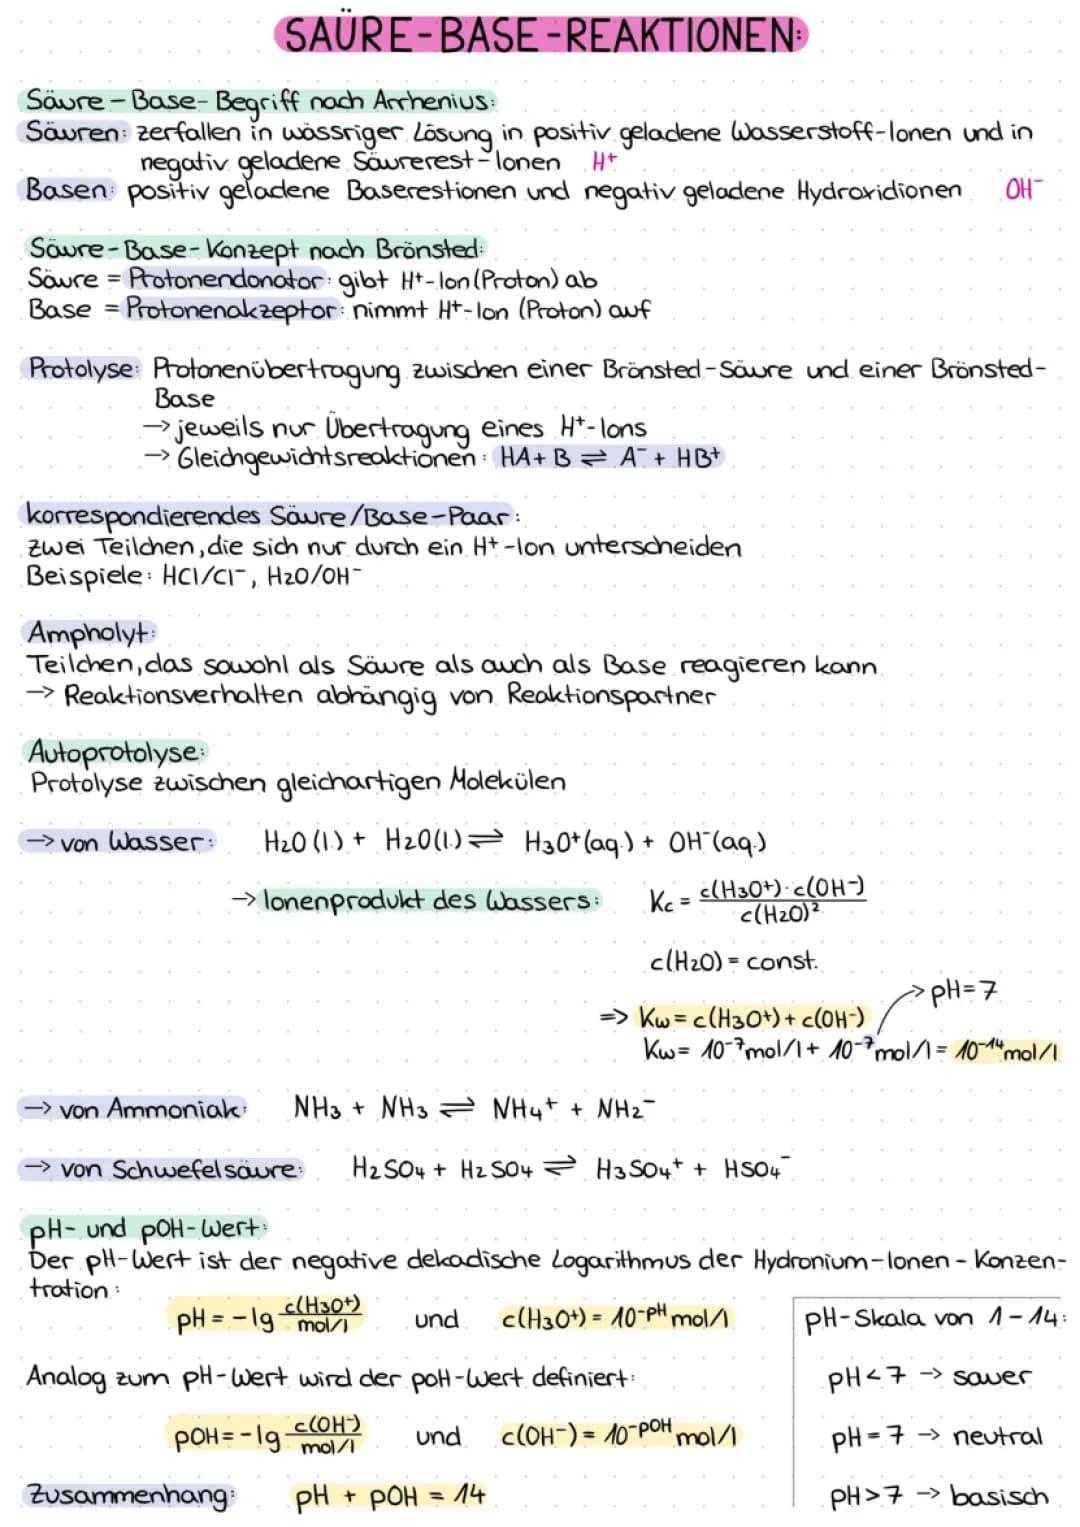 SAÜRE-BASE-REAKTIONEN:
Säure-Base-Begriff nach Arrhenius:
Säuren: zerfallen in wässriger Lösung in positiv geladene Wasserstoff-Ionen und in
negativ geladene Säurerest-Ionen H⁺
Basen: positiv geladene Baserestionen und negativ geladene Hydroxidionen OH⁻
Säure-Base-Konzept nach Brönsted:
Säure = Protonendonator: gibt H⁺-Ion (Proton) ab
Base = Protonenakzeptor: nimmt H⁺-Ion (Proton) auf
Protolyse: Protonenübertragung zwischen einer Brönsted-Säure und einer Brönsted-
Base
→ jeweils nur Übertragung eines H⁺-Ions
→ Gleichgewichtsreaktionen: HA + B ⇌ A⁻ + HB⁺
korrespondierendes Säure/Base-Paar:
zwei Teilchen, die sich nur durch ein H⁺-Ion unterscheiden
Beispiele: HCl/Cl⁻, H₂O/OH⁻
Ampholyt:
Teilchen, das sowohl als Säure als auch als Base reagieren kann
→ Reaktionsverhalten abhängig von Reaktionspartner
Autoprotolyse:
Protolyse zwischen gleichartigen Molekülen
→ von Wasser: H₂O (l.) + H₂O (l.) ⇌ H₃O⁺ (aq.) + OH⁻ (aq.)
→ Ionenprodukt des Wassers: Kc = c(H₃O⁺) · c(OH⁻) / c(H₂O)²
c(H₂O) = const.
→ pH=7
=> Kw = c(H₃O⁺) + c(OH⁻)
Kw = 10⁻⁷ mol/l + 10⁻⁷ mol/l = 10⁻¹⁴ mol/l
→ von Ammoniak: NH₃ + NH₃ ⇌ NH₄⁺ + NH₂⁻
→ von Schwefelsäure: H₂SO₄ + H₂SO₄ ⇌ H₃SO₄⁺ + HSO₄⁻
pH- und pOH-Wert:
Der pH-Wert ist der negative dekadische Logarithmus der Hydronium-Ionen-Konzen-
tration:
pH = -lg c(H₃O⁺) / mol/l und c(H₃O⁺) = 10⁻ᵖᴴ mol/l
Analog zum pH-Wert wird der poH-Wert definiert:
pOH = -lg c(OH⁻) / mol/l und c(OH⁻) = 10⁻ᵖᴼᴴ mol/l
Zusammenhang: pH + pOH = 14
pH-Skala von 1-14:
pH < 7 → sauer
pH = 7 → neutral
pH > 7 → basisch